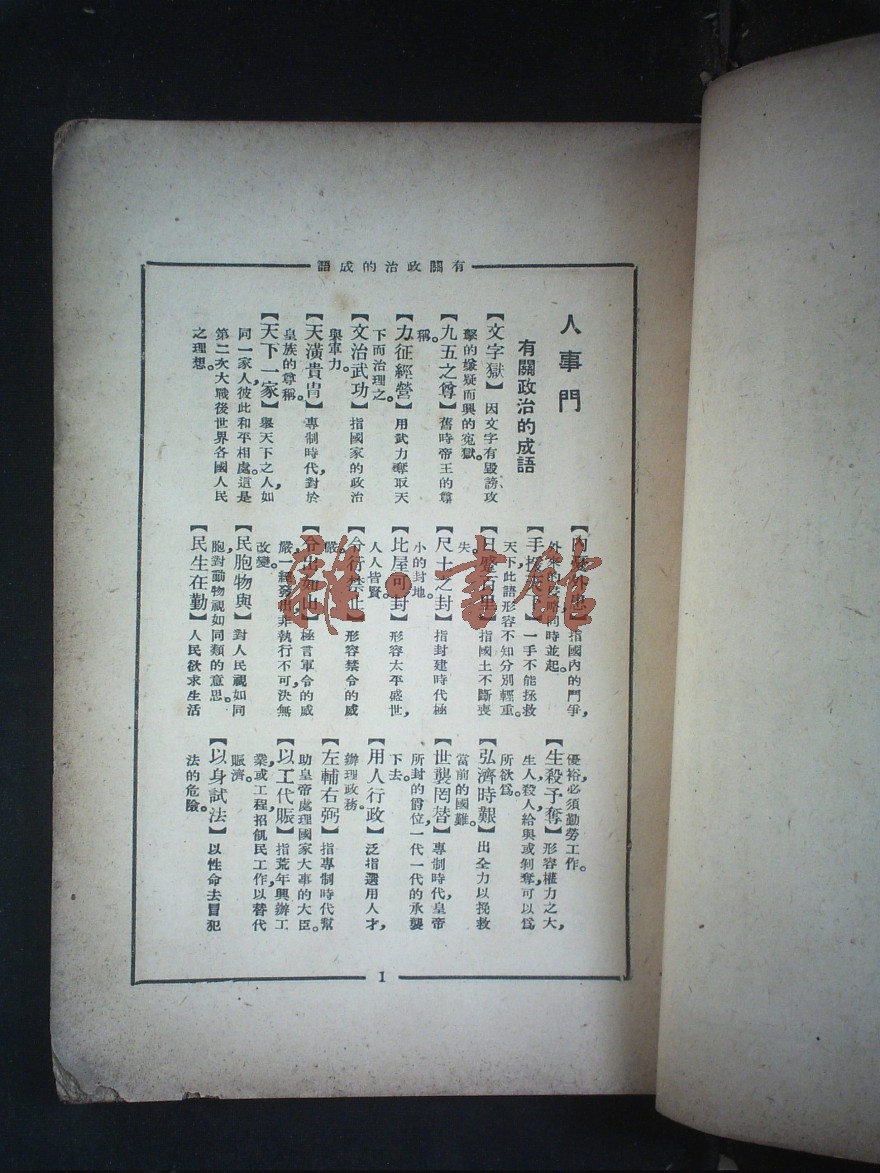 有關政治的成語
人事門
有關政治的成語
【文字獄】因文字有毀謗攻
擊的嫌疑而興的寃獄。
【九五之尊】舊時帝王的尊
稱。
【力征經營】用武力奪取天
下而治理之。
【文治武功】指國家的政治
與軍力。
【天潢貴胄】專制時代,對於
皇族的尊稱。
【天下一家】舉天下之人,如
同一家人,彼此和平相處。這是
第二次大戰後世界各國人民
之理想。
【內憂外患】指國內的鬥爭,
外來的侵略同時並起。
【手援天下】一手不能拯救
天下,此語形容不知分別輕重。
【日蹙百里】指國土不斷喪
失。
【尺土之封】指封建時代極
小的封地。
【比屋可封】形容太平盛世,
人人皆賢。
【令行禁止】形容禁令的威
嚴。
【令出如山】極言軍令的威
嚴,一經發出,非執行不可,決無
改變。
【民胞物與】對人民視如同
胞,對動物視如同類的意思。
【民生在勤】人民欲求生活
優裕,必須勤勞工作。
【生殺予奪】形容權力之大,
生人,殺人,給與或剝奪,可以爲
所欲爲。
【弘濟時艱】出全力以挽救
當前的國難。
【世襲罔替】專制時代,皇帝
所封的爵位,一代一代的承襲
下去。
【用人行政】泛指選用人才,
辦理政務。
【左輔右弼】指專制時代幫
助皇帝處理國家大事的大臣。
【以工代賑】指荒年興辦工
業或工程,招飢民工作,以替代
賑濟。
【以身試法】以性命去冒犯
法的危險。
1
雜·書館